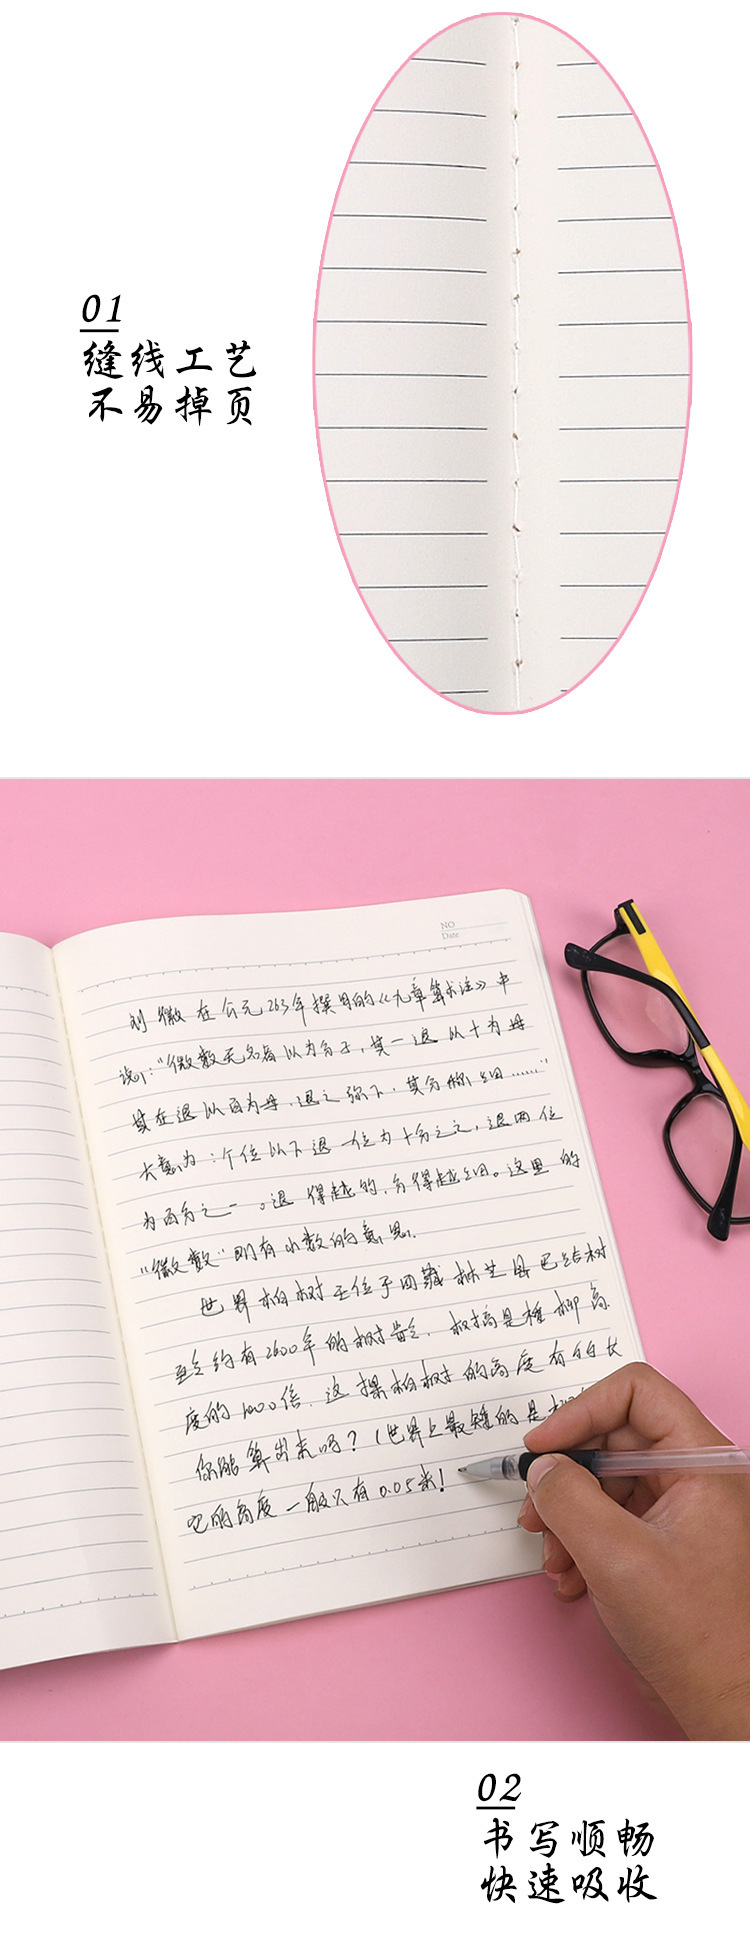 01
缝线工艺
不易掉页
NO
Date
刘徽在公元263年撰写的《九章算术注》中
说："微数无名者以为分子，其一退以十为母
其在退以百为母，退之弥下，其分弥细……"
大意为：个位以下退一位为十分之，退两位
为百分之一。退得越的，分得越细。这里的
"微数"即有小数的意思。
世界柏树王位于西藏林芝县巴结村
至今约有2600年的树龄，树搞是種柳高
度的1000倍，这棵柏树的高度有
你能算出来吗？（世界上最矮的是
它的高度一般只有0.05米！
02
书写顺畅
快速吸收